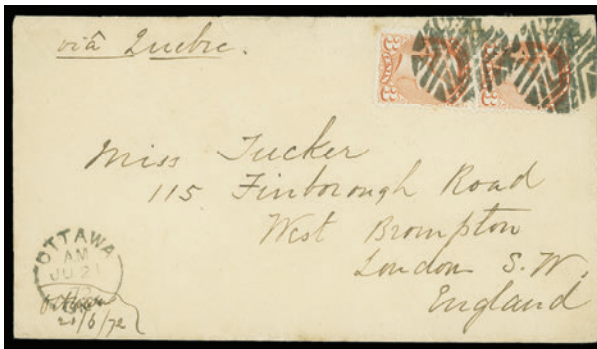 viâ Quebec.
Miss Tucker
115 Finborough Road
West Brompton
London S.W.
England
OTTAWA
AM
JU 21
72
Ottawa
21/6/72